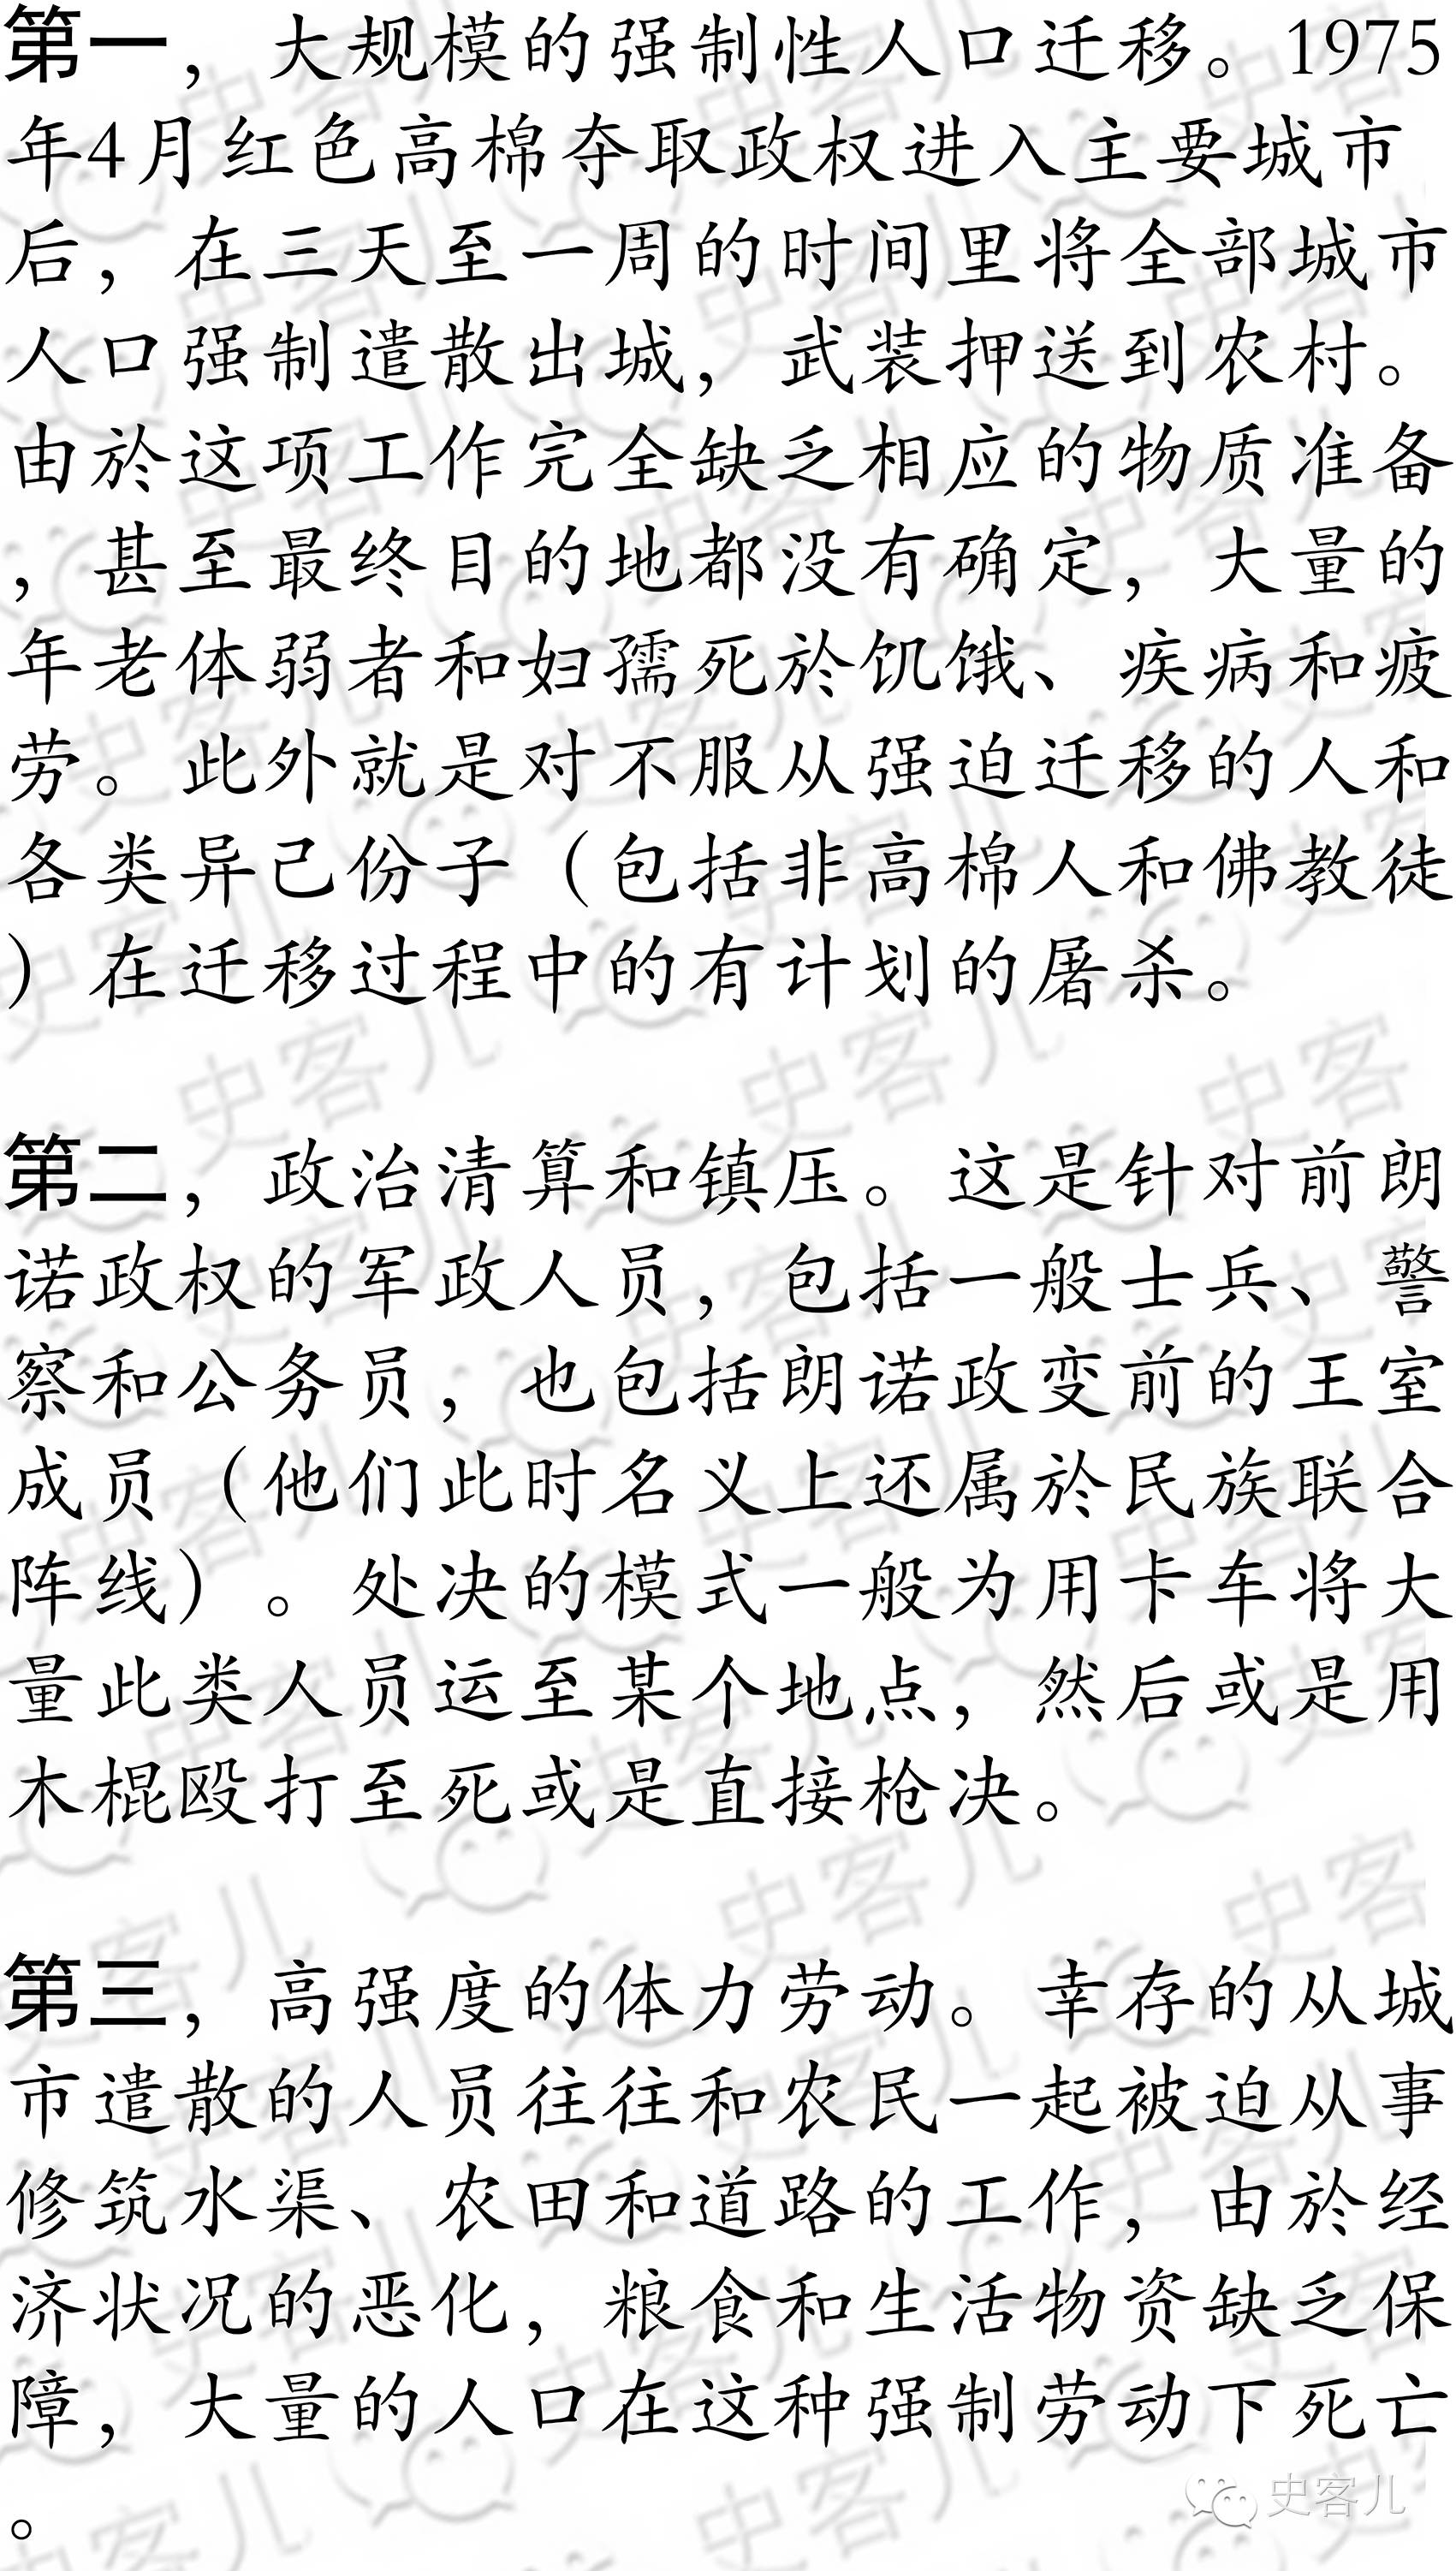 第一，大规模的强制性人口迁移。1975
年4月红色高棉夺取政权进入主要城市
后，在三天至一周的时间里将全部城市
人口强制遣散出城，武装押送到农村。
由於这项工作完全缺乏相应的物质准备
，甚至最终目的地都没有确定，大量的
年老体弱者和妇孺死於饥饿、疾病和疲
劳。此外就是对不服从强迫迁移的人和
各类异己份子（包括非高棉人和佛教徒
）在迁移过程中的有计划的屠杀。
第二，政治清算和镇压。这是针对前朗
诺政权的军政人员，包括一般士兵、警
察和公务员，也包括朗诺政变前的王室
成员（他们此时名义上还属於民族联合
阵线）。处决的模式一般为用卡车将大
量此类人员运至某个地点，然后或是用
木棍殴打至死或是直接枪决。
第三，高强度的体力劳动。幸存的从城
市遣散的人员往往和农民一起被迫从事
修筑水渠、农田和道路的工作，由於经
济状况的恶化，粮食和生活物资缺乏保
障，大量的人口在这种强制劳动下死亡
。
史客儿